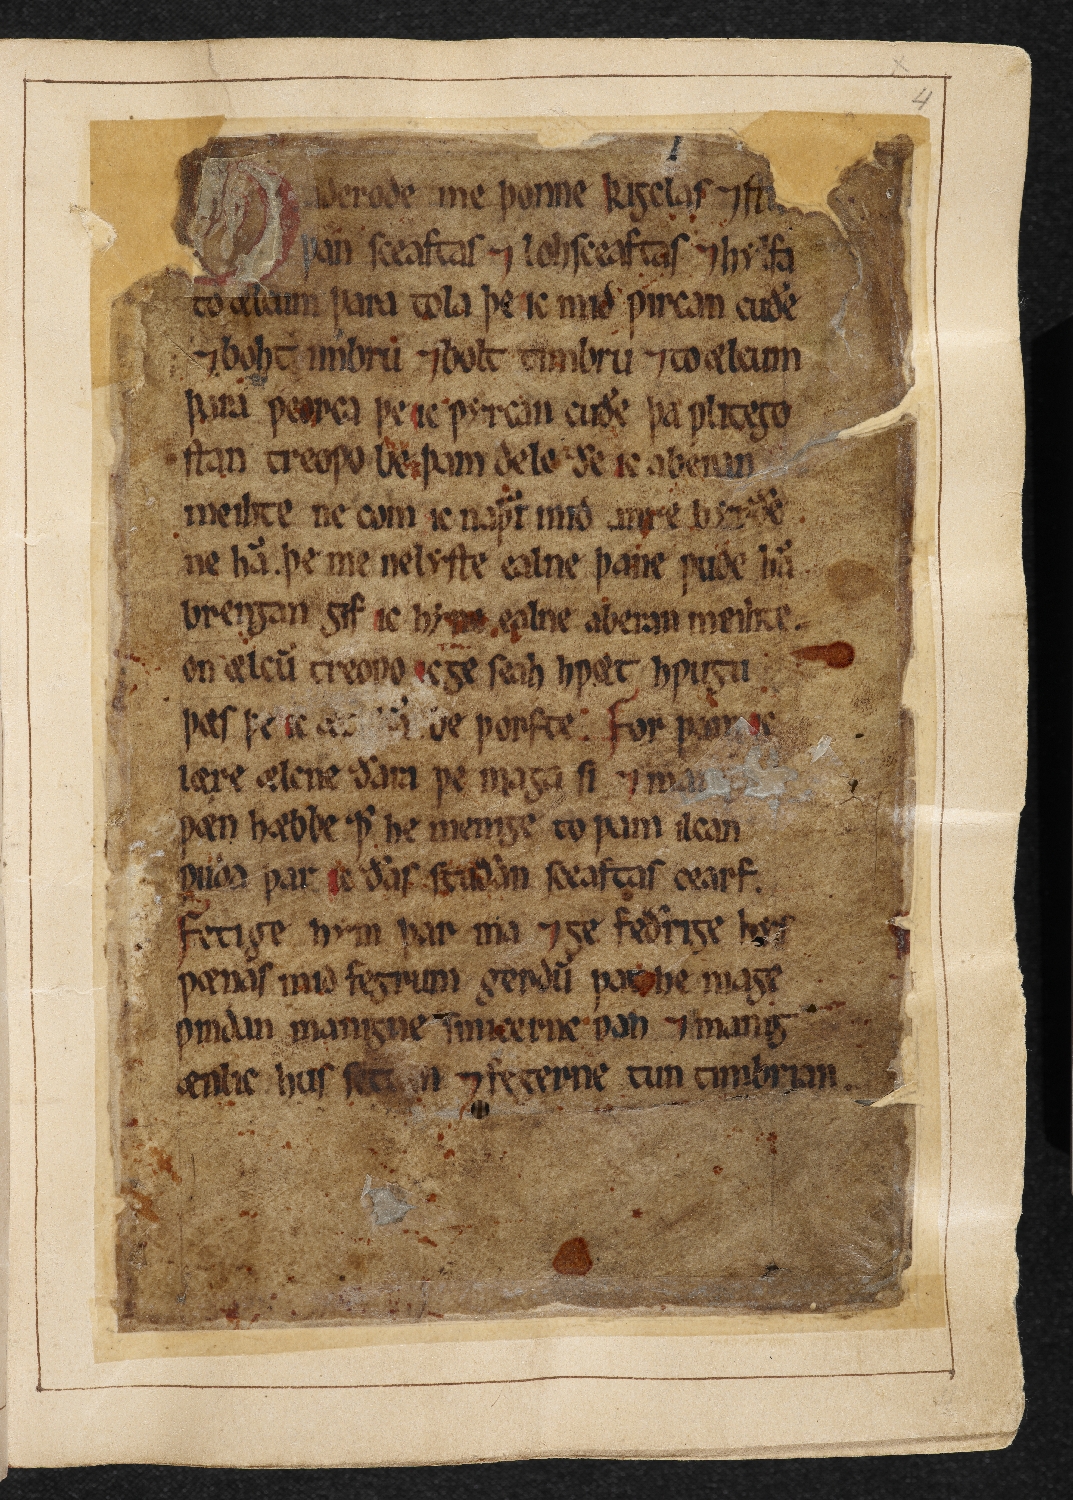 4
1
Gaderode me þonne kigelas ⁊ stu
þan sceaftas ⁊ lohsceaftas ⁊ hylfa
to ælcum þara tola þe ic mid ƿircan cuðe
⁊ bohtimbrū ⁊ bolt timbrū ⁊ to ælcum
þara ƿeorca þe ic ƿyrcan cuðe þa ƿlitego
stan treoƿo be þam dele ðe ic aberan
meihte ne com ic naþer mid anre byrðe
ne hā þe me ne lyste ealne þane ƿude hā
brengan gif ic hyne ealne aberan meihte.
on ælcū treoƿo ic ge seah hƿæt hƿugu
þæs þe ic æt hā be þorfte. Forþam ic
lære ælcne ðara þe maga si ⁊ man
ƿæn hæbbe ꝥ he menige to þam ilcan
ƿuda þar ic ðas stuðan sceaftas cearf.
Fetige hym þar ma ⁊ ge feðrige hys
ƿænas mid fegrum gerdū þat he mage
ƿindan manigne smicerne ƿah ⁊ manig
ænlic hus settan ⁊ fegerne tun timbrian